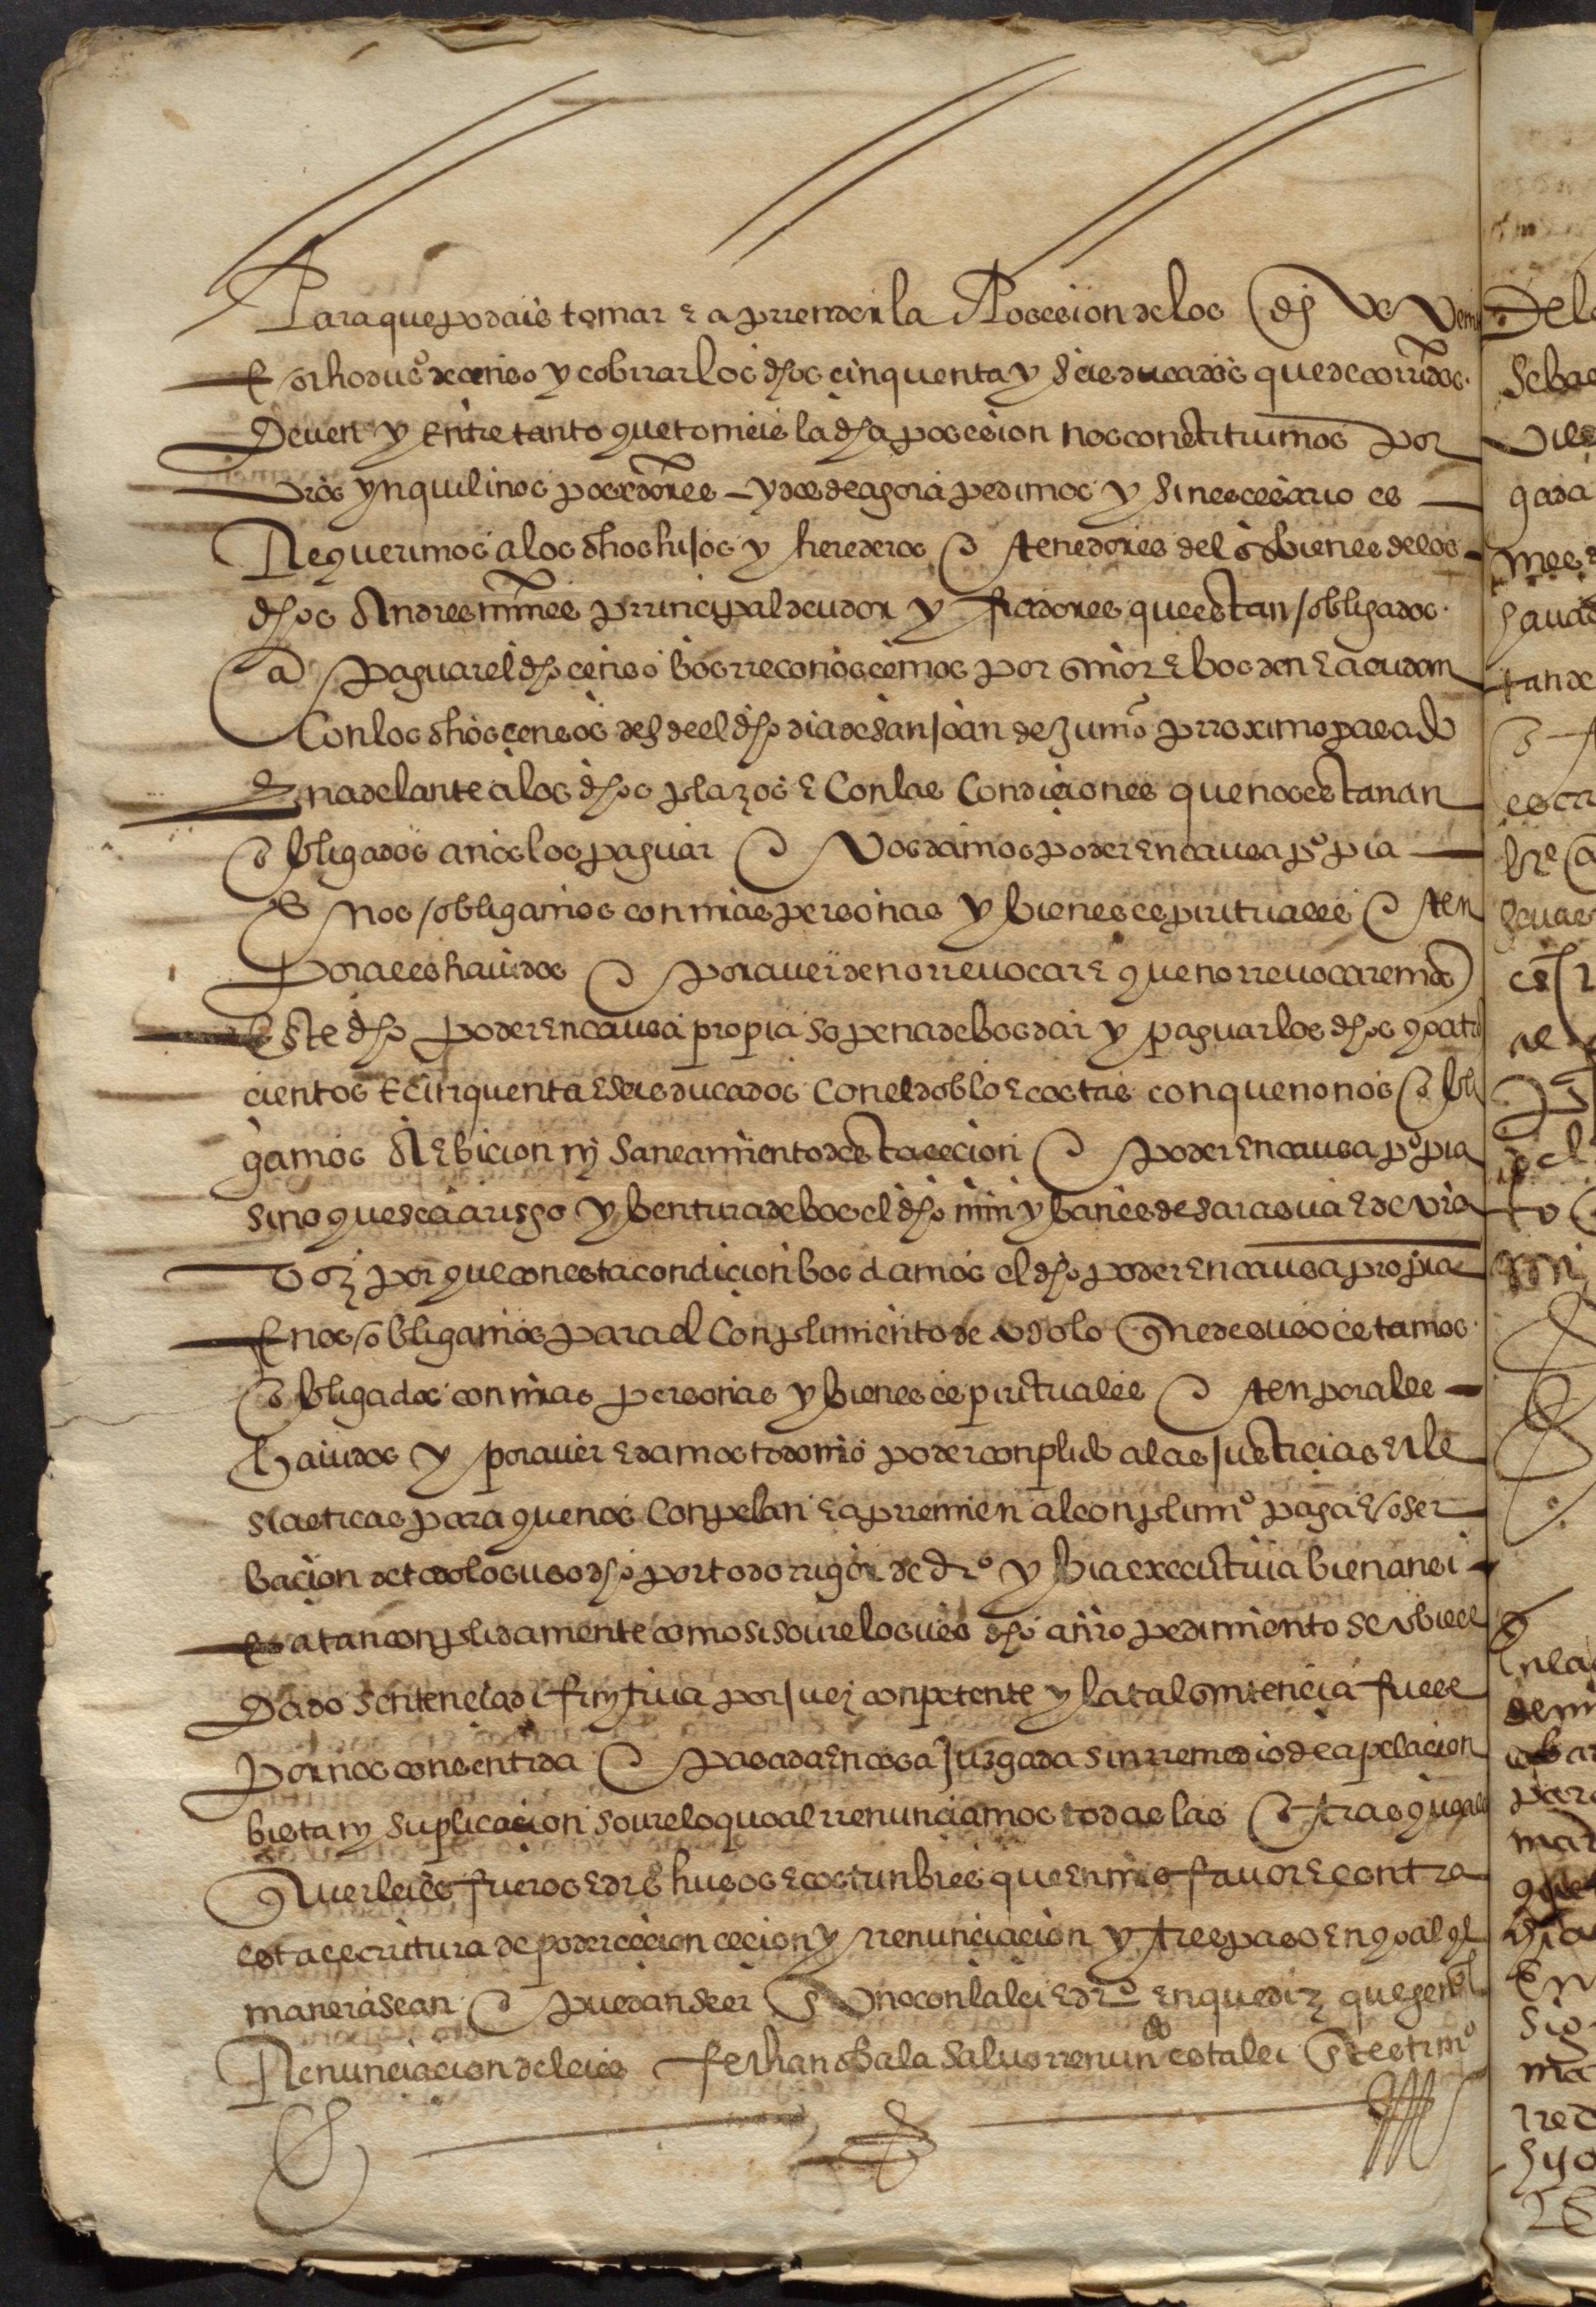 Para que podais tomar e aprrender la Posesion de los dhos Veinte
E ocho ducos de censo y cobrrar los dhos cinquenta y seis ducados que de corridos
Deven y Entre tanto que tomeis la dha posesion nos constituimos por
vros ynquilinos posedores – y desde agora pedimos y si nescesario es
Requerimos a los dhos hijos y herederos o tenedores de los bienes de los
dhos Andres mrnes prrincipal deudor y fiadores que estan obligados
a paguar el dho censo bos rreconoscemos por señor e bos den e acudan
Con los dhos censos desde el dho dia de san joan de Junio prroximo pasado
En adelante a los dhos plazos e Con las Condiciones que nos estauan
obligados a nos los paguar o Vos damos poder En causa propia
E Nos obligamos con nras personas y bienes espirituales o ten
porales hauidos o por auer de no rreuocar e que no rreuocaremos
Este dho poder En causa propia so pena de bos dar y paguar los dhos quatro
cientos E cinquenta e seis ducados con el doblo e costas con que no nos obli
gamos A Ebicion ni saneamiento desta cecion o poder En causa propia
sino que sea a risgo y bentura de bos el dho min ybanes de sarasua e de vra
Voz por que con esta condicion bos damos el dho poder En causa propia
E nos obligamos para el Conplimiento de todo lo que de suso estamos
obligados con nras personas y bienes espirituales o tenporales
hauidos y por auer e damos todo nro poder conplido a las justicias Ecle
siasticas para que nos Conpelan e apremien al conplimo paga e oser
bacion de todo lo suso dho por todo rrigor de dro y bia executiua bien ansi
E a tan conplidamente como si soure lo suso dho a nro pedimiento se obiese
Dado sentencia difinitiua por juez conpetente y la tal sentencia fuese
Por nos consentida o pasada En cosa Jusgada sin rremedio de apelacion
bista ni suplicacion soure lo qual rrenunciamos todas las otras quales
quier leies fueros e dros husos e costunbres que En nro fauor e contra
esta escritura de poder cecion cesion y rrenunciacion y trespaso En qual quier
manera sean o puedan seer en vno con la lei e dro En que diz que general
Renunciacion de leies fecha non bala saluo rrenundo esta lei En testimo